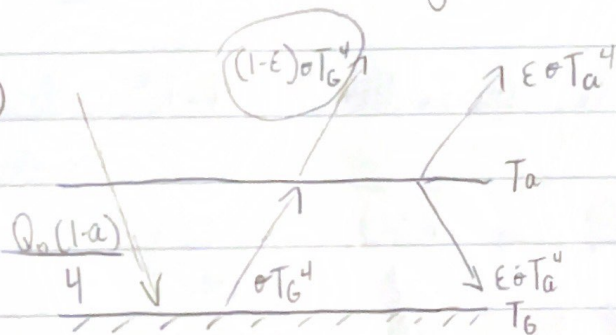 (1-ε)σT_G^4
εσT_a^4
T_a
Q_o(1-a)
4
σT_G^4
εσT_a^4
T_G